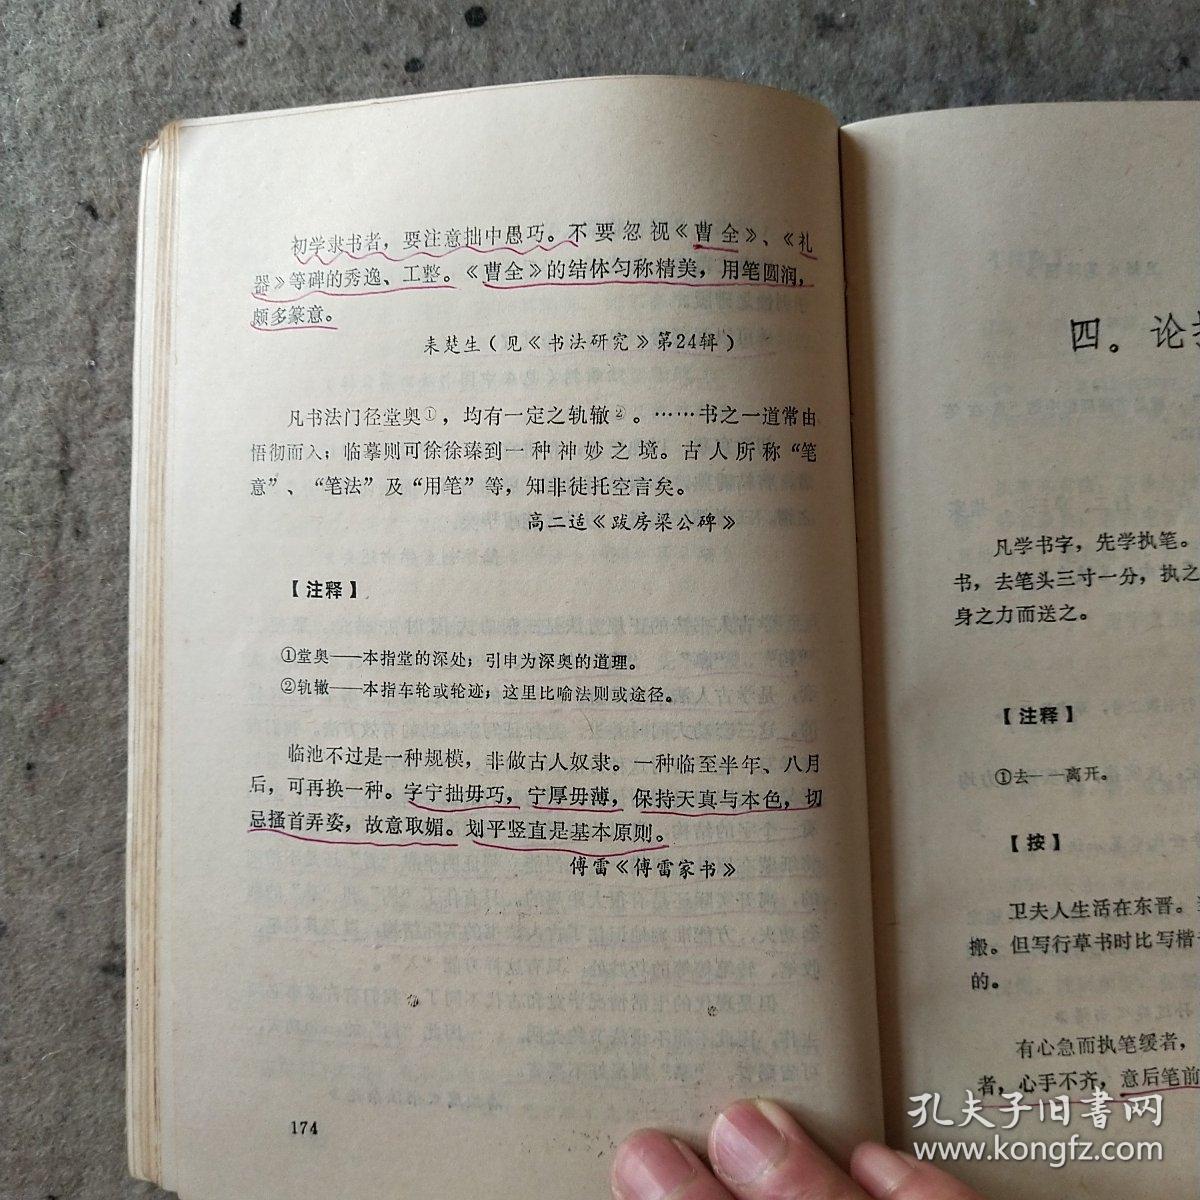 初学隶书者，要注意拙中愚巧。不要忽视《曹全》、《礼
器》等碑的秀逸、工整。《曹全》的结体匀称精美，用笔圆润，
颇多篆意。
来楚生（见《书法研究》第24辑）
凡书法门径堂奥①，均有一定之轨辙②。……书之一道常由
悟彻而入；临摹则可徐徐臻到一种神妙之境。古人所称“笔
意”、“笔法”及“用笔”等，知非徒托空言矣。
高二适《跋房梁公碑》
【注释】
①堂奥——本指堂的深处；引申为深奥的道理。
②轨辙——本指车轮或轮迹；这里比喻法则或途径。
临池不过是一种规模，非做古人奴隶。一种临至半年、八月
后，可再换一种。字宁拙毋巧，宁厚毋薄，保持天真与本色，切
忌搔首弄姿，故意取媚。划平竖直是基本原则。
傅雷《傅雷家书》
174
四。论
凡学书字，先学执笔。
书，去笔头三寸一分，执之
身之力而送之。
【注释】
①去——离开。
【按】
卫夫人生活在东晋。
搬。但写行草书时比写楷
的。
有心急而执笔缓者，
者，心手不齐，意后笔前
孔夫子旧书网
www.kongfz.com